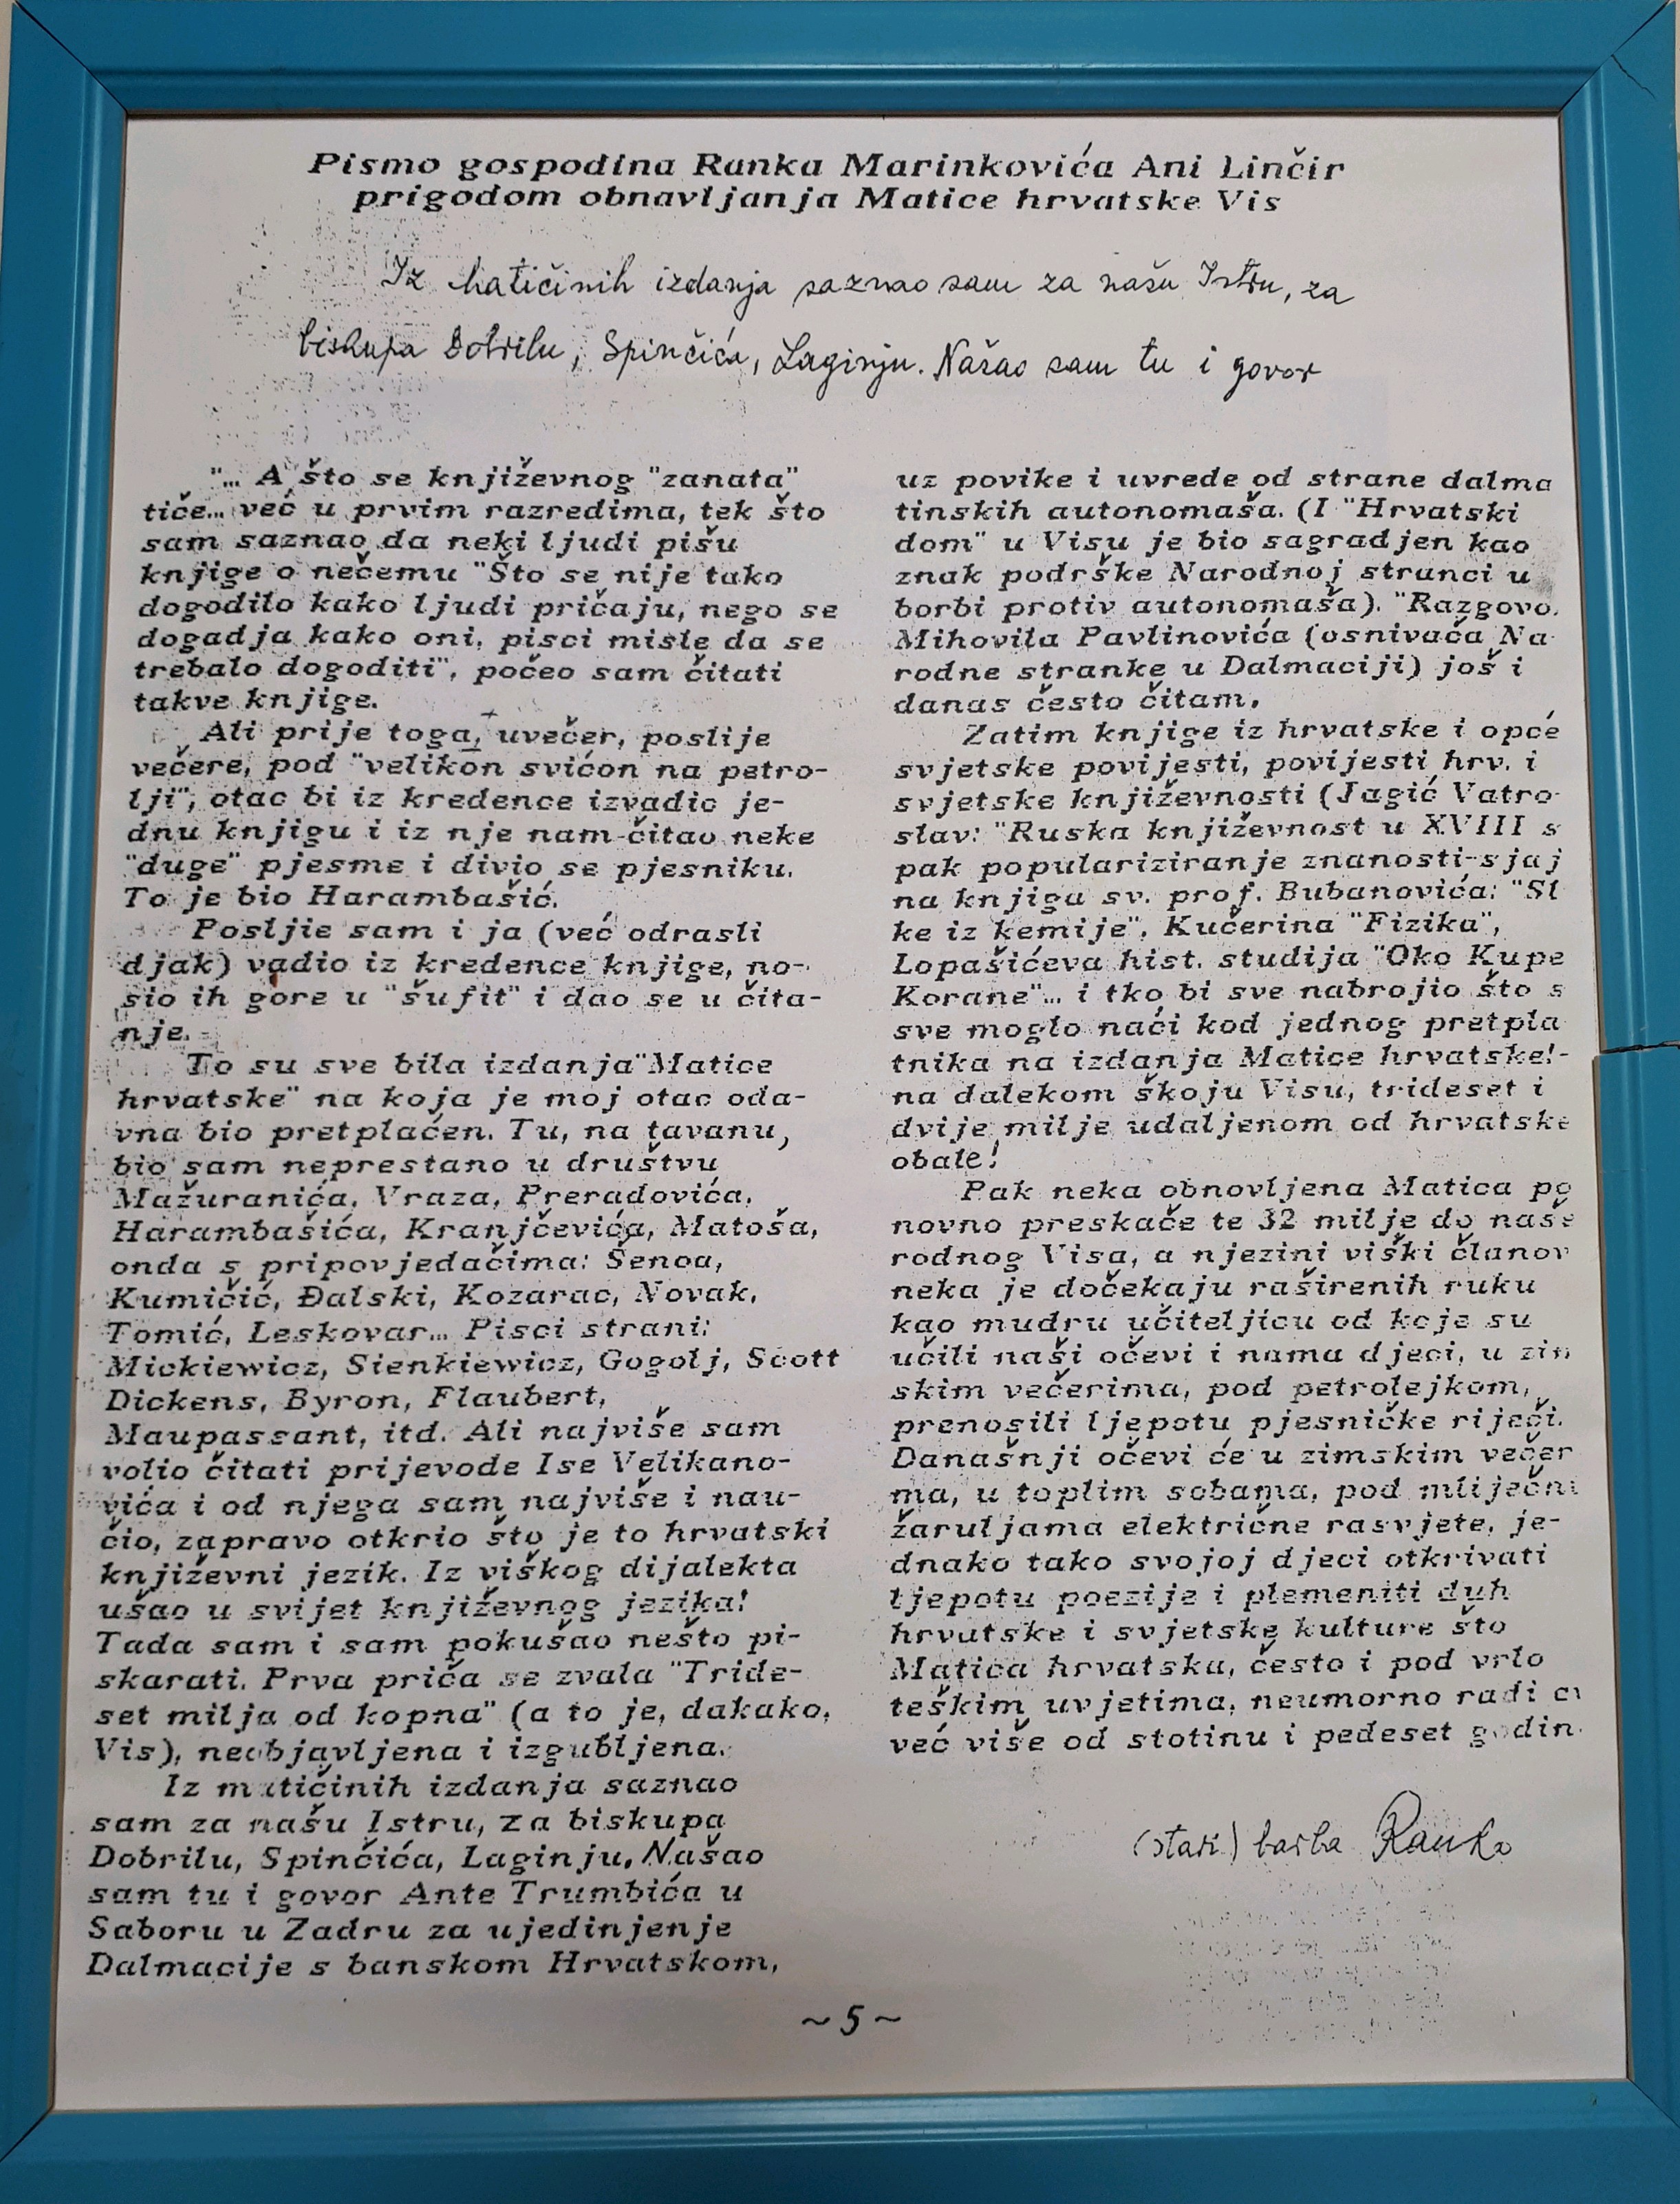 Pismo gospodina Ranka Marinkovića Ani Linčir
prigodom obnavljanja Matice hrvatske Vis
Iz Matičinih izdanja saznao sam za našu Istru, za
biskupa Dobrilu, Spinčića, Laginju. Našao sam tu i govor
"... A što se književnog "zanata"
tiče... već u prvim razredima, tek što
sam saznao da neki ljudi pišu
knjige o nečemu "Što se nije tako
dogodilo kako ljudi pričaju, nego se
dogadja kako oni, pisci misle da se
trebalo dogoditi", počeo sam čitati
takve knjige.
Ali prije toga, uvečer, poslije
večere, pod "velikon svićon na petro-
lji", otac bi iz kredence izvadio je-
dnu knjigu i iz nje nam čitao neke
"duge" pjesme i divio se pjesniku.
To je bio Harambašić.
Posljie sam i ja (već odrasli
djak) vadio iz kredence knjige, no-
sio ih gore u "šufit" i dao se u čita-
nje.
To su sve bila izdanja "Matice
hrvatske" na koja je moj otac oda-
vna bio pretplaćen. Tu, na tavanu,
bio sam neprestano u društvu
Mažuranića, Vraza, Preradovića,
Harambašića, Kranjčevića, Matoša,
onda s pripovjedačima: Šenoa,
Kumičić, Đalski, Kozarac, Novak,
Tomić, Leskovar... Pisci strani:
Mickiewicz, Sienkiewicz, Gogolj, Scott
Dickens, Byron, Flaubert,
Maupassant, itd. Ali najviše sam
volio čitati prijevode Ise Velikano-
vića i od njega sam najviše i nau-
čio, zapravo otkrio što je to hrvatski
književni jezik. Iz viškog dijalekta
ušao u svijet književnog jezika!
Tada sam i sam pokušao nešto pi-
skarati. Prva priča se zvala "Tride-
set milja od kopna" (a to je, dakako,
Vis), neobjavljena i izgubljena.
Iz matičinih izdanja saznao
sam za našu Istru, za biskupa
Dobrilu, Spinčića, Laginju. Našao
sam tu i govor Ante Trumbića u
Saboru u Zadru za ujedinjenje
Dalmacije s banskom Hrvatskom,
uz povike i uvrede od strane dalma
tinskih autonomaša. (I "Hrvatski
dom" u Visu je bio sagradjen kao
znak podrške Narodnoj stranci u
borbi protiv autonomaša). "Razgovo.
Mihovila Pavlinovića (osnivača Na
rodne stranke u Dalmaciji) još i
danas često čitam.
Zatim knjige iz hrvatske i opće
svjetske povijesti, povijesti hrv. i
svjetske književnosti (Jagić Vatro-
slav: "Ruska književnost u XVIII s
pak populariziranje znanosti-sjaj
na knjiga sv. prof. Bubanovića: "Sl
ke iz kemije", Kučerina "Fizika",
Lopašićeva hist. studija "Oko Kupe
Korane"... i tko bi sve nabrojio što s
sve moglo naći kod jednog pretpla
tnika na izdanja Matice hrvatske!-
na dalekom škoju Visu, trideset i
dvije milje udaljenom od hrvatske
obale!
Pak neka obnovljena Matica po
novno preskače te 32 milje do naše
rodnog Visa, a njezini viški članov
neka je dočekaju raširenih ruku
kao mudru učiteljicu od koje su
učili naši očevi i nama djeci, u zim
skim večerima, pod petrolejkom,
prenosili ljepotu pjesničke riječi.
Današnji očevi će u zimskim večer
ma, u toplim sobama, pod mliječni
žaruljama električne rasvjete, je-
dnako tako svojoj djeci otkrivati
ljepotu poezije i plemeniti duh
hrvatske i svjetske kulture što
Matica hrvatska, često i pod vrlo
teškim uvjetima, neumorno radi
već više od stotinu i pedeset godin
(stari) barba Ranko
~ 5 ~